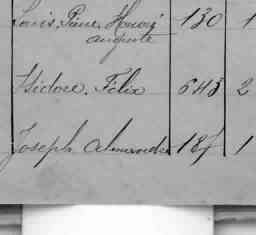 Louis, Pierre Henri 130 1
auguste
Isidore. Felix 643 2
Joseph Alexandre 187 1